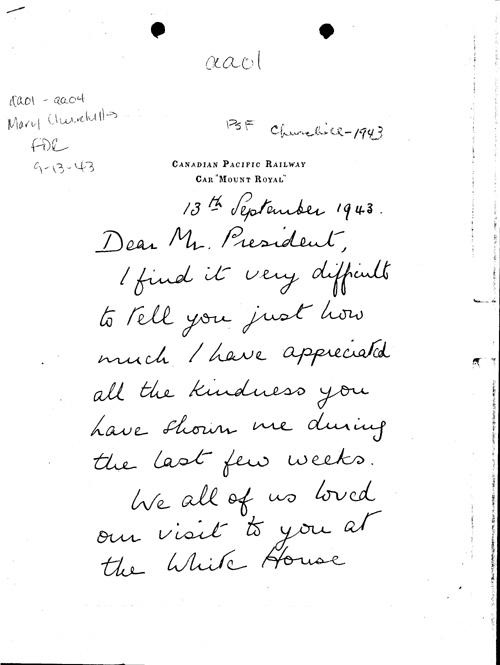 aa01
aa01 - aa04
Mary Churchill →
FDR
9-13-43
PSF Churchill-1943
CANADIAN PACIFIC RAILWAY
CAR "MOUNT ROYAL"
13th September 1943.
Dear Mr. President,
I find it very difficult
to tell you just how
much I have appreciated
all the kindness you
have shown me during
the last few weeks.
We all of us loved
our visit to you at
the White House